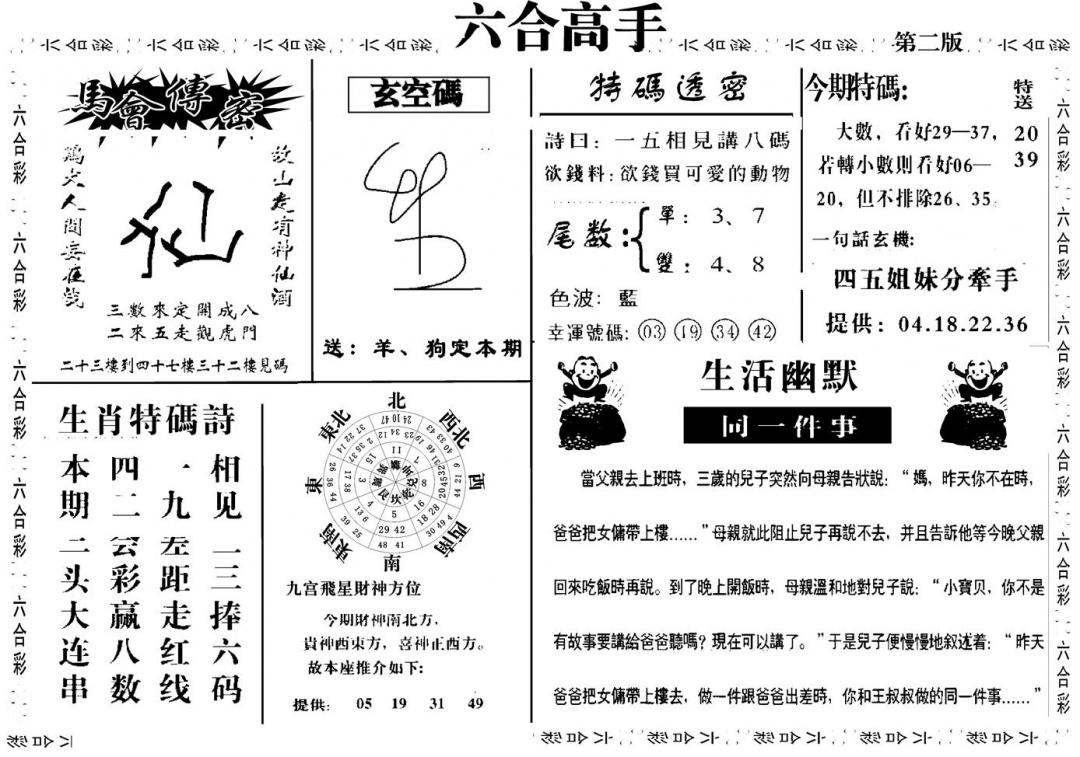 六合高手
第二版
馬會傳密
故山走有神仙酒
三數來定開成八
二來五走觀虎門
二十三樓到四十七樓三十二樓見碼
玄空碼
送：羊、狗定本期
特碼透密
詩曰：一五相見講八碼
欲錢料：欲錢買可愛的動物
尾数：
單：3、7
雙：4、8
色波：藍
幸運號碼：03 19 34 42
今期特碼：
特送
20
39
大數，看好29—37，
若轉小數則看好06—
20，但不排除26、35
一句話玄機：
四五姐妹分牽手
提供：04.18.22.36
生肖特碼詩
相见二三捧六码
一九左距走红线
四二会彩赢八数
本期二头大连串
北
西北
西
西南
南
東南
東
東北
九宫飛星財神方位
今期財神南北方，
貴神西東方，喜神正西方。
故本座推介如下：
提供： 05 19 31 49
生活幽默
同一件事
當父親去上班時，三歲的兒子突然向母親告狀說：“媽，昨天你不在時，
爸爸把女傭帶上樓……”母親就此阻止兒子再說不去，并且告訴他等今晚父親
回來吃飯時再說。到了晚上開飯時，母親溫和地對兒子說：“小寶贝，你不是
有故事要講給爸爸聽嗎？現在可以講了。”于是兒子便慢慢地叙述着：“昨天
爸爸把女傭帶上樓去，做一件跟爸爸出差時，你和王叔叔做的同一件事……”
六合彩